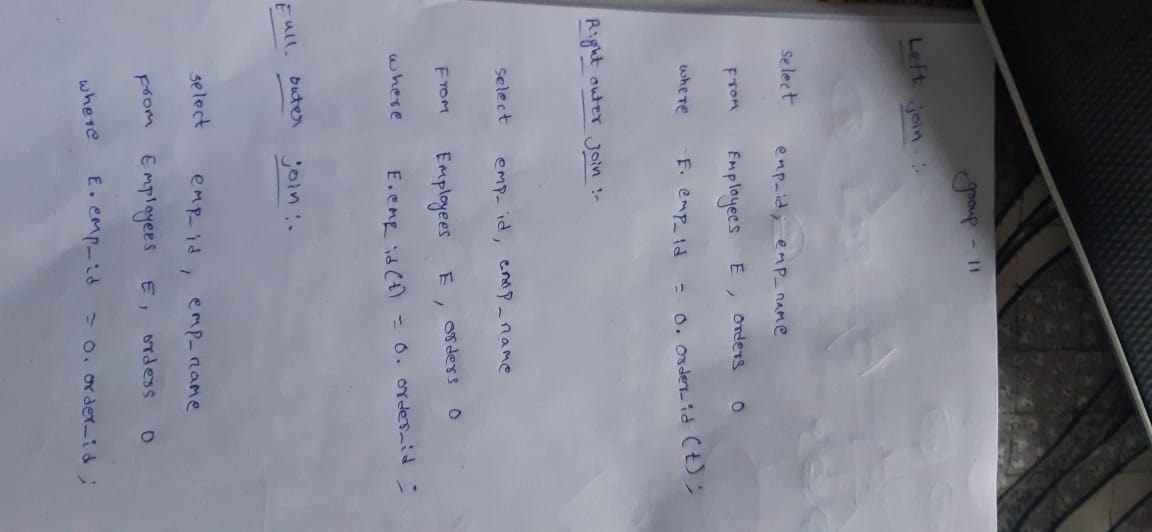 group - 11
Left join :-
select emp_id, emp_name
From Employees E, orders O
where E. emp_id = O. order_id (+);
Right outer join :-
select emp_id, emp_name
From Employees E, orders O
where E. emp id (+) = O. order_id ;
Full outer join :-
select emp_id, emp_name
From Employees E, orders O
where E. emp_id = O. order_id ;